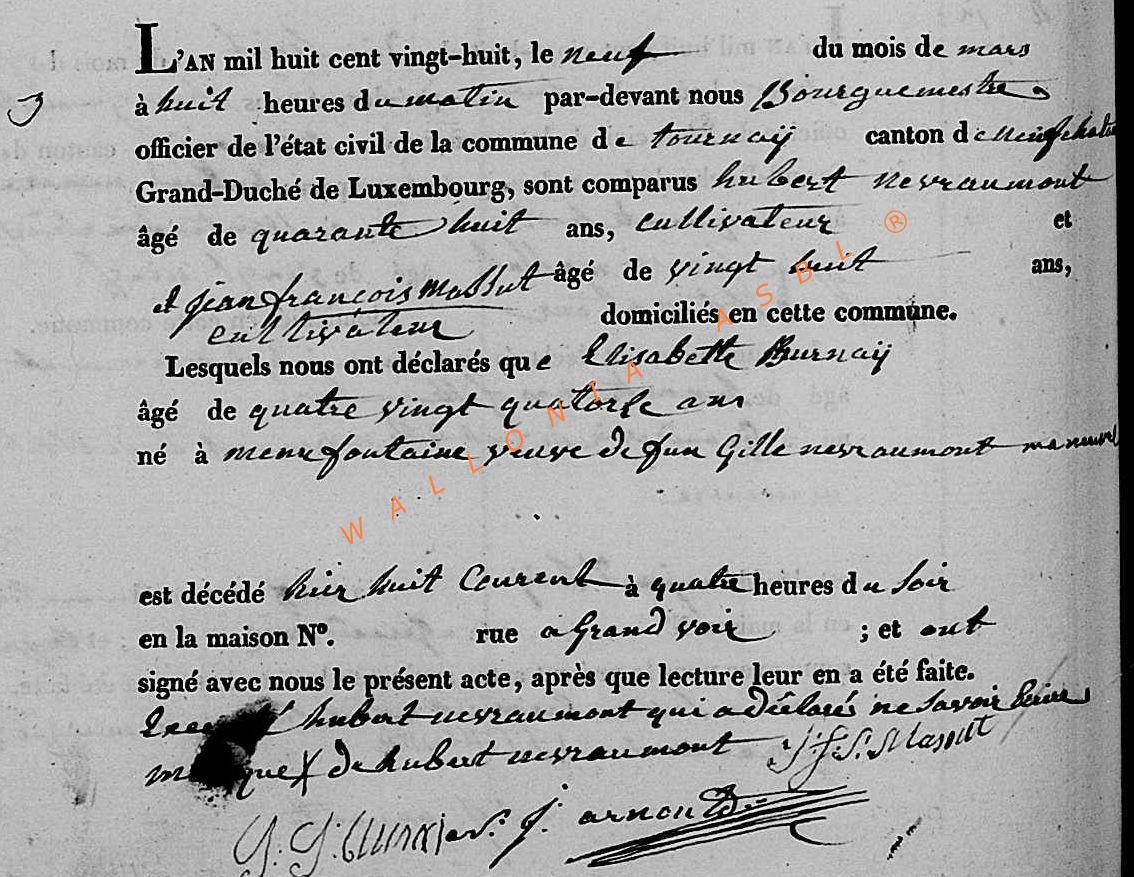 L'AN mil huit cent vingt-huit, le neuf du mois de mars
3 à huit heures du matin par-devant nous Bourguemestre
officier de l'état civil de la commune de tournaÿ canton de neufchateau
Grand-Duché de Luxembourg, sont comparus hubert nevraumont
âgé de quarante huit ans, cultivateur et
et jean françois massut âgé de vingt huit ans,
cultivateur domiciliés en cette commune.
Lesquels nous ont déclarés que Elisabette Burnaÿ
âgé de quatre vingt quatorse ans
né à menufontaine veuve de feu Gille nevraumont
est décédé hier huit Courent à quatre heures du soir
en la maison Nº. rue a Grand voir ; et ont
signé avec nous le présent acte, après que lecture leur en a été faite.
hubert nevraumont qui a déclarés ne savoir Ecrire
marque X de hubert nevraumont J. f. S. Massut
j. arnould
WALLONIA ASBL ®